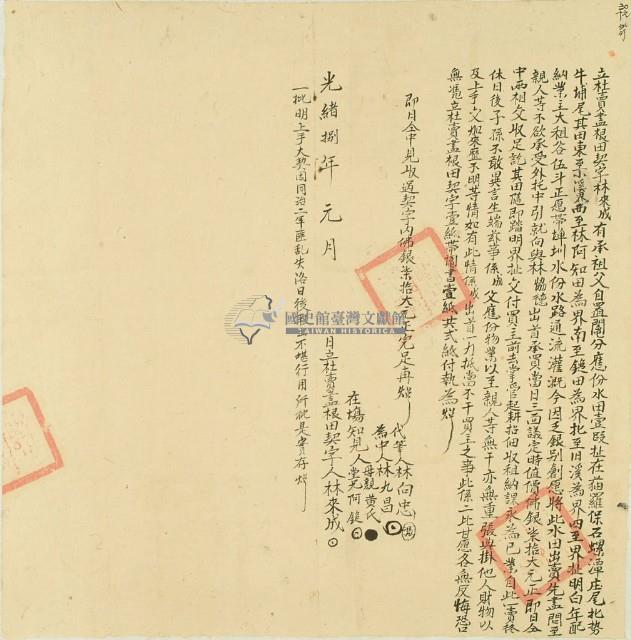 立杜賣盡根田契字林來成有承祖父自置鬮分應份水田壹段址在貓羅保石螺潭庄尾北勢
牛埔尾其田東至小溪界西至林阿知田為界南至鎚田為界北至旧溪為界四至界址明白年配
納業主大租谷伍斗正愿帶埤圳水份水路通流灌溉今因乏銀別創愿將此水田出賣先盡問至
親人等不欲承受外托中引就向與林 出首承買當日三面議定時值價佛銀柒拾大元正即日仝
中兩相交收足訖其田隨即踏明界址交付買主前去掌管起耕招佃收租納課永為己業自此一賣終
休日後子孫不敢異言生端滋事係成父應份物業以至親人等無干亦無重張典掛他人財物以
及上手交加來歷不明等情如有此情係成出首一力抵當不干買主之事此係二比甘愿各無反悔恐口
無憑立杜賣盡根田契字壹紙帶鬮書壹紙共弍紙付執為炤
即日仝中見收過契字內佛銀柒拾大元正完足再炤
代筆人林向忠
為中人林九昌
母親黃氏
在場知見人堂兄阿鎚
光緒捌年元月 日立杜賣盡根田契字人林來成
一批明上手大契因同治二年匪乱失落日後取出不堪行用所批是實存炤
國史館臺灣文獻館
TAIWAN HISTORICA